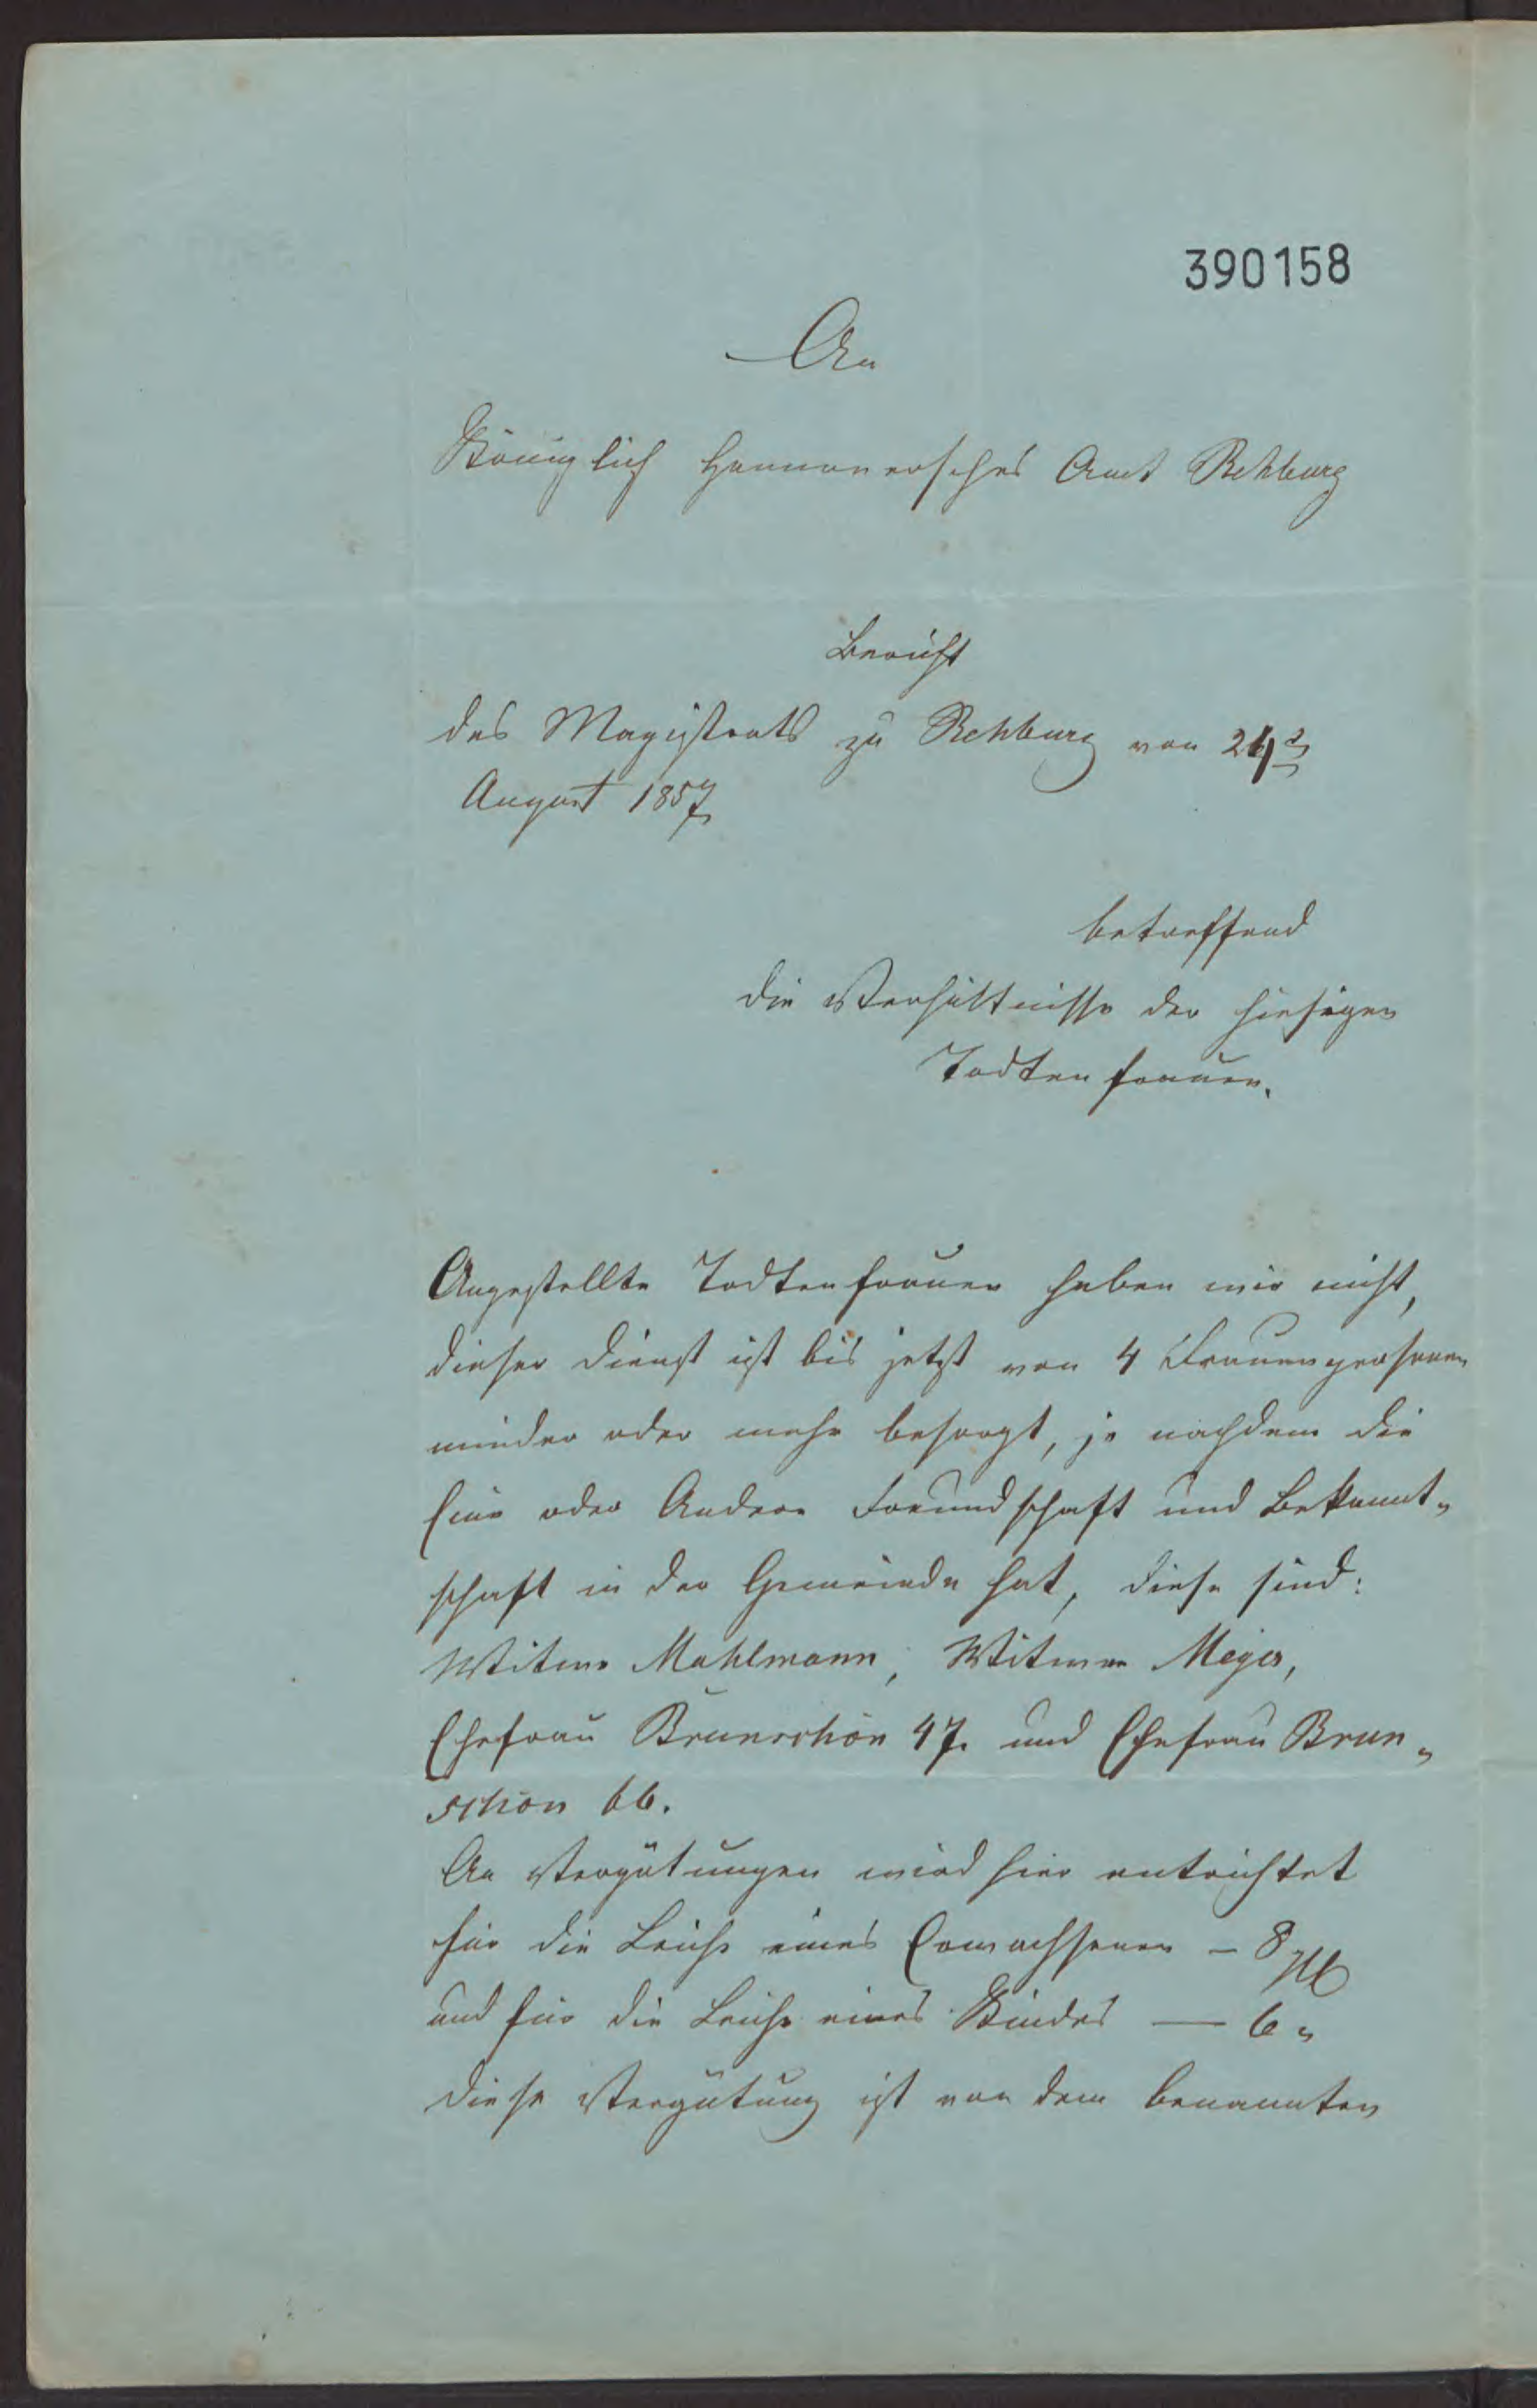 390158
An
Königlich Hannoversches Amt Rehburg
Bericht
des Magistrats zu Rehburg von 24
August 1857
betreffend
die Verhältnisse der hiesigen
Todtenfrauen.
Angestellte Todtenfrauen haben wir nicht,
dieser Dienst ist bis jetzt von 4 Frauenpersonen
minder oder mehr besorgt, je nachdem die
Eine oder Andere Freundschaft und Bekannt„
schaft in der Gemeinde hat, diese sind:
Witwe Mahlmann, Witwe Meyer,
Ehefrau Brunschön 47. und Ehefrau Brun„
schön 66.
An Vergütungen wird hier entrichtet
für die Leiche eines Erwachsenen – 8
und für die Leiche eines Kindes — 6 „
diese Vergütung ist von dem benannten